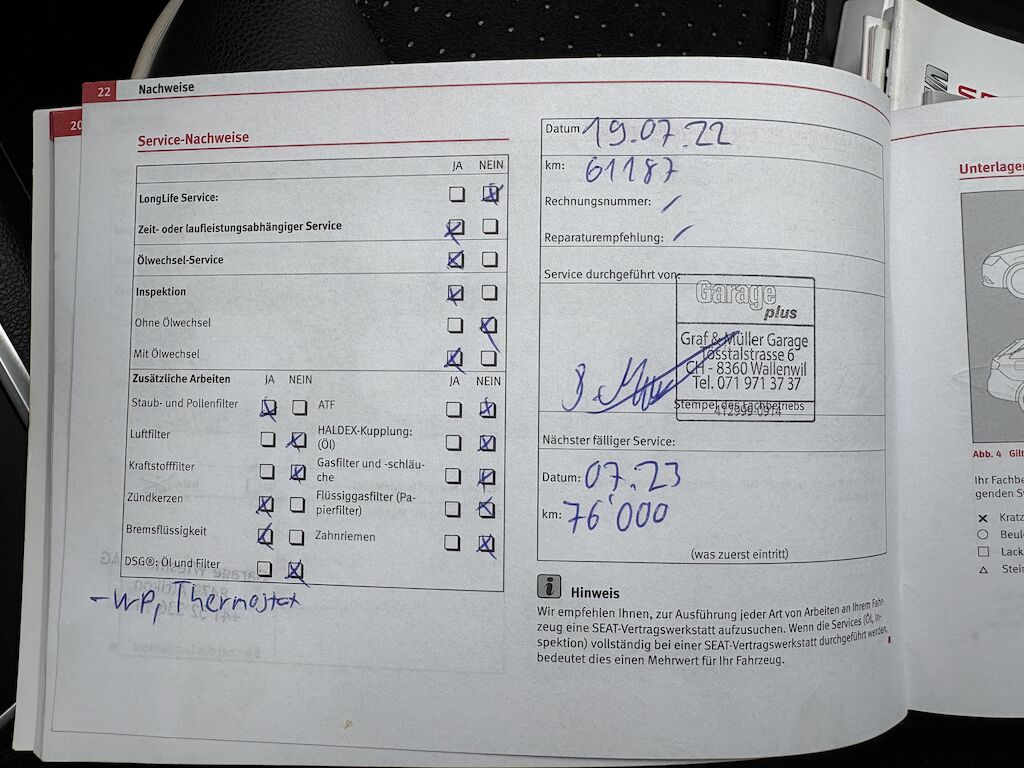 22 Nachweise
20
Service-Nachweise
JA NEIN
LongLife Service:
Zeit- oder laufleistungsabhängiger Service
Ölwechsel-Service
Inspektion
Ohne Ölwechsel
Mit Ölwechsel
Zusätzliche Arbeiten JA NEIN JA NEIN
Staub- und Pollenfilter ATF
Luftfilter HALDEX-Kupplung:
(Öl)
Kraftstofffilter Gasfilter und -schläu-
che
Zündkerzen Flüssiggasfilter (Pa-
pierfilter)
Bremsflüssigkeit Zahnriemen
DSG®: Öl und Filter
-WP, Thermostat
Datum 19.07.22
km: 61187
Rechnungsnummer: /
Reparaturempfehlung: /
Service durchgeführt von:
Garage
plus
Graf & Müller Garage
Tösstalstrasse 6
CH - 8360 Wallenwil
Tel. 071 971 37 37
Stempel des Fachbetriebs
412999 0914
Nächster fälliger Service:
Datum: 07.23
km: 76'000
(was zuerst eintritt)
i Hinweis
Wir empfehlen Ihnen, zur Ausführung jeder Art von Arbeiten an Ihrem Fahr-
zeug eine SEAT-Vertragswerkstatt aufzusuchen. Wenn die Services (Öl, In-
spektion) vollständig bei einer SEAT-Vertragswerkstatt durchgeführt werden,
bedeutet dies einen Mehrwert für Ihr Fahrzeug.
Unterlagen
Abb. 4 Gilt
Ihr Fachbe
genden S
Kratz
Beul
Lack
Stein